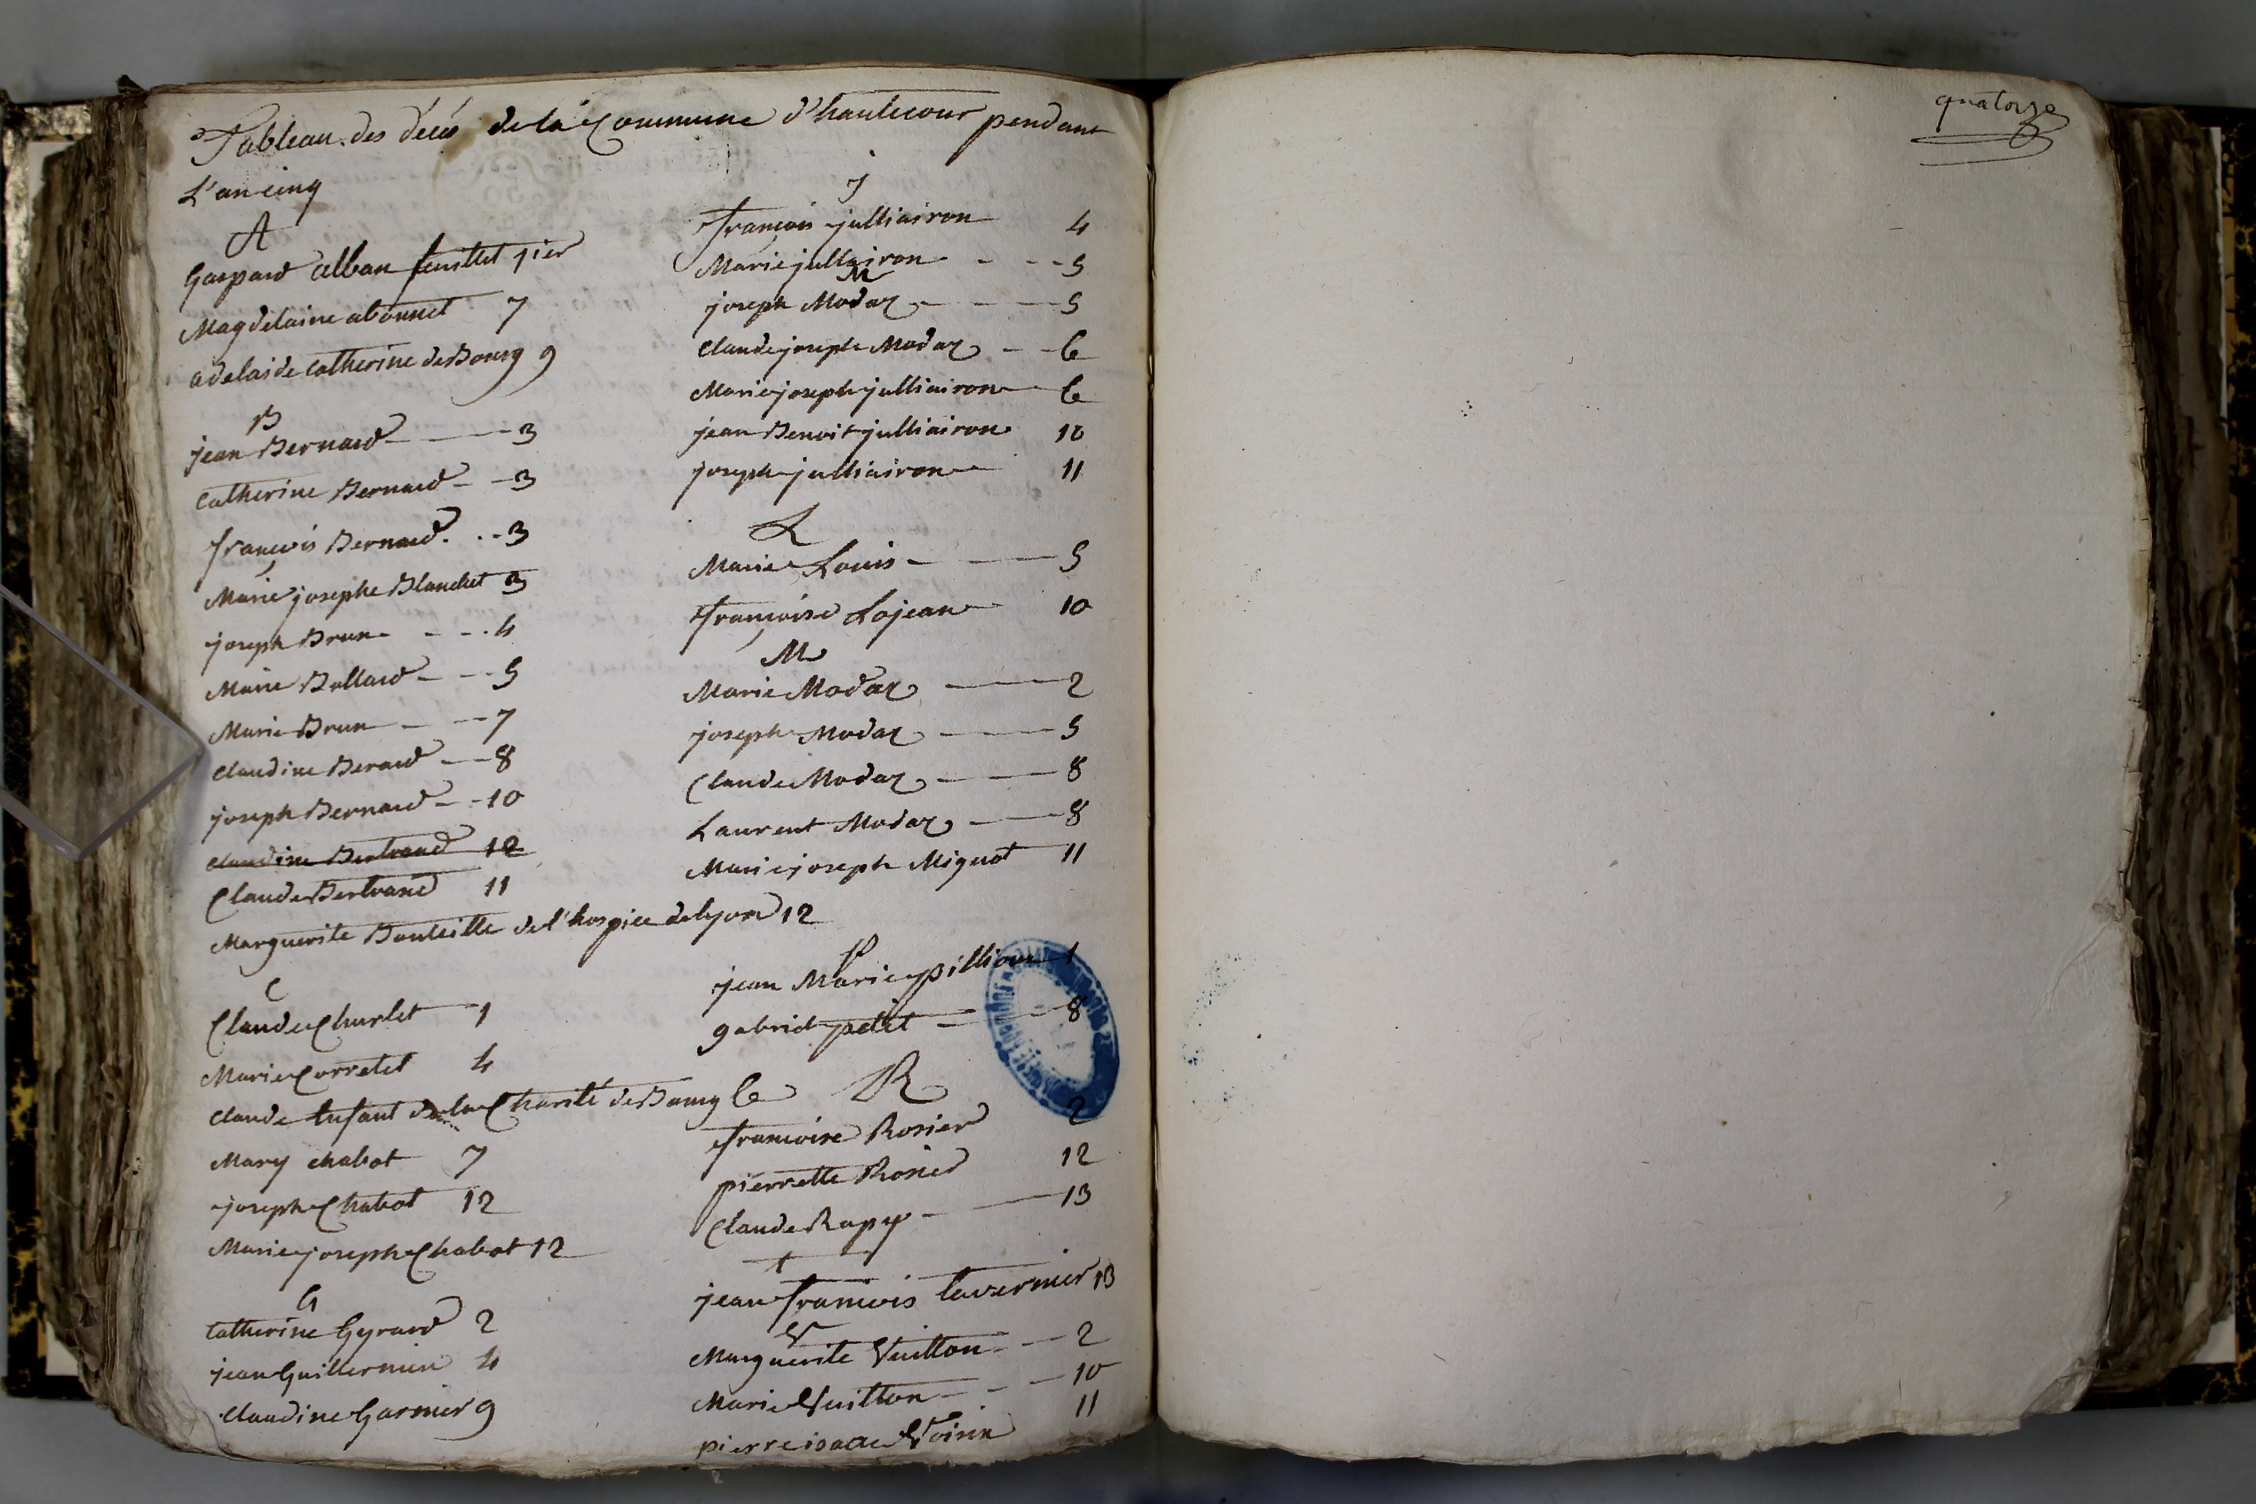 Tableau des décès de la Commune d'hautecour pendant
L'an cinq
A
Gaspard alban feuillet 1ier
Magdelaine abonnet 7
adelaide catherine de Bourg 9
B
jean Bernard 3
catherine Bernard 3
francois Bernard 3
Marie josephe Blanchet 3
joseph Brun 4
Marie Bollard 5
Marie Brun 7
claudine Berard 8
joseph Bernard 10
claudine Bertrand 12
Claude Bertrand 11
Marguerite Bouteille de l'hospice de lyon 12
C
Claude Charlet 1
Marie Corretet 4
claude Enfant de la Charité de Bourg 6
Mary chabot 7
joseph Chabot 12
Marie joseph Chabot 12
G
catherine Gyrard 2
jean Guillermin 4
claudine Garnier 9
J
francois julliairon 4
Marie julliairon 5
M
joseph Modaz 5
claude joseph Modaz 6
Marie joseph julliairon 6
jean Benoit julliairon 10
joseph julliairon 11
L
Marie Louis 5
francoise Lojean 10
M
Marie Modaz 2
joseph Modaz 5
Claude Modaz 8
Laurent Modaz 8
Marie joseph Mignot 11
P
jean Marie pillion 1
gabriel petit 8
R
francoise Rosier 2
pierrette Rosier 12
Claude Rapy 13
t
jean francois tavernier 13
V
Marguerite Vuillon 2
Marie Vuillon 10
pierre isaac Voisin 11
quatorze